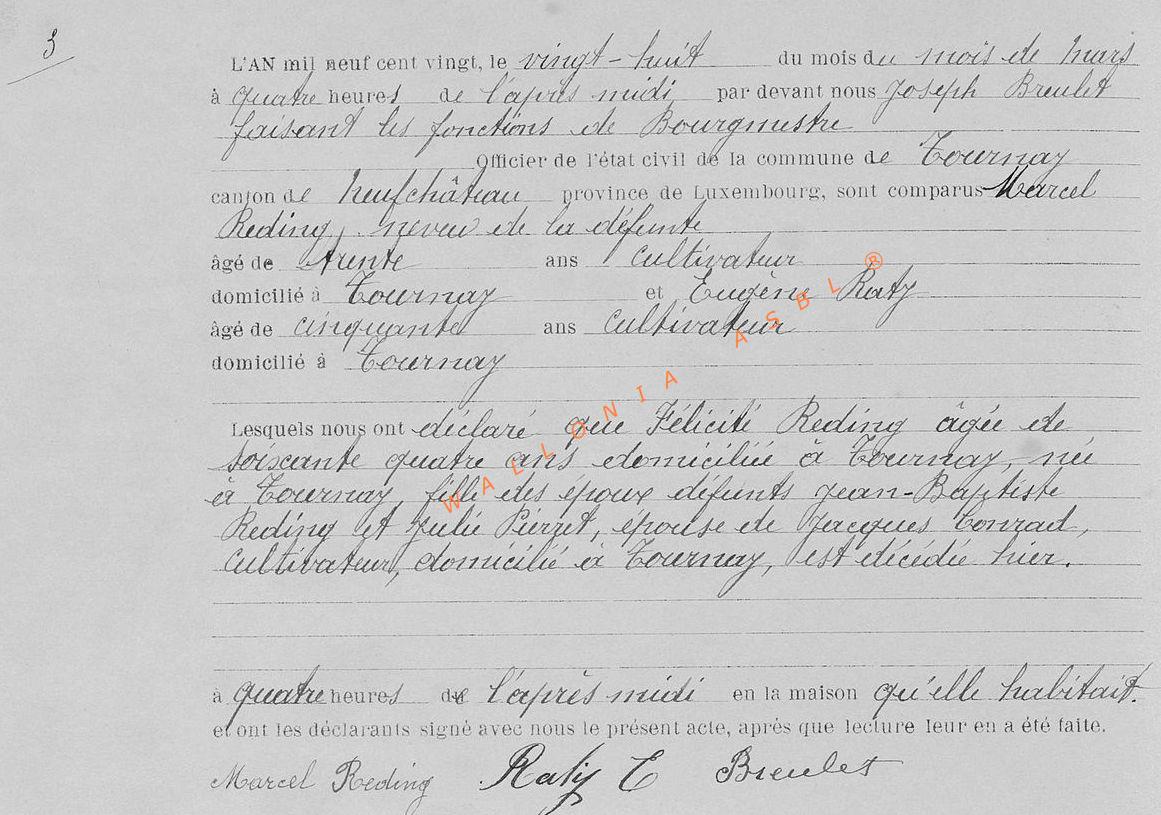 3
L'AN mil neuf cent vingt, le vingt-huit du mois du mois de Mars
à quatre heures de l'après midi par devant nous Joseph Breulet
faisant les fonctions de Bourgmestre
Officier de l'état civil de la commune de Tournay
canton de Neufchâteau province de Luxembourg, sont comparus Marcel
Reding, neveu de la défunte
âgé de trente ans cultivateur
domicilié à Tournay et Eugène Raty
âgé de cinquante ans cultivateur
domicilié à Tournay
Lesquels nous ont déclaré que Félicité Reding âgée de
soixante quatre ans domiciliée à Tournay, née
à Tournay, fille des époux défunts Jean-Baptiste
Reding et Julie Pierret, épouse de Jacques Conrad,
cultivateur, domicilié à Tournay, est décédée hier.
à quatre heures de l'après midi en la maison qu'elle habitait.
et ont les déclarants signé avec nous le présent acte, après que lecture leur en a été faite.
Marcel Reding Raty E Breulet
WALLONIA ASBL ®